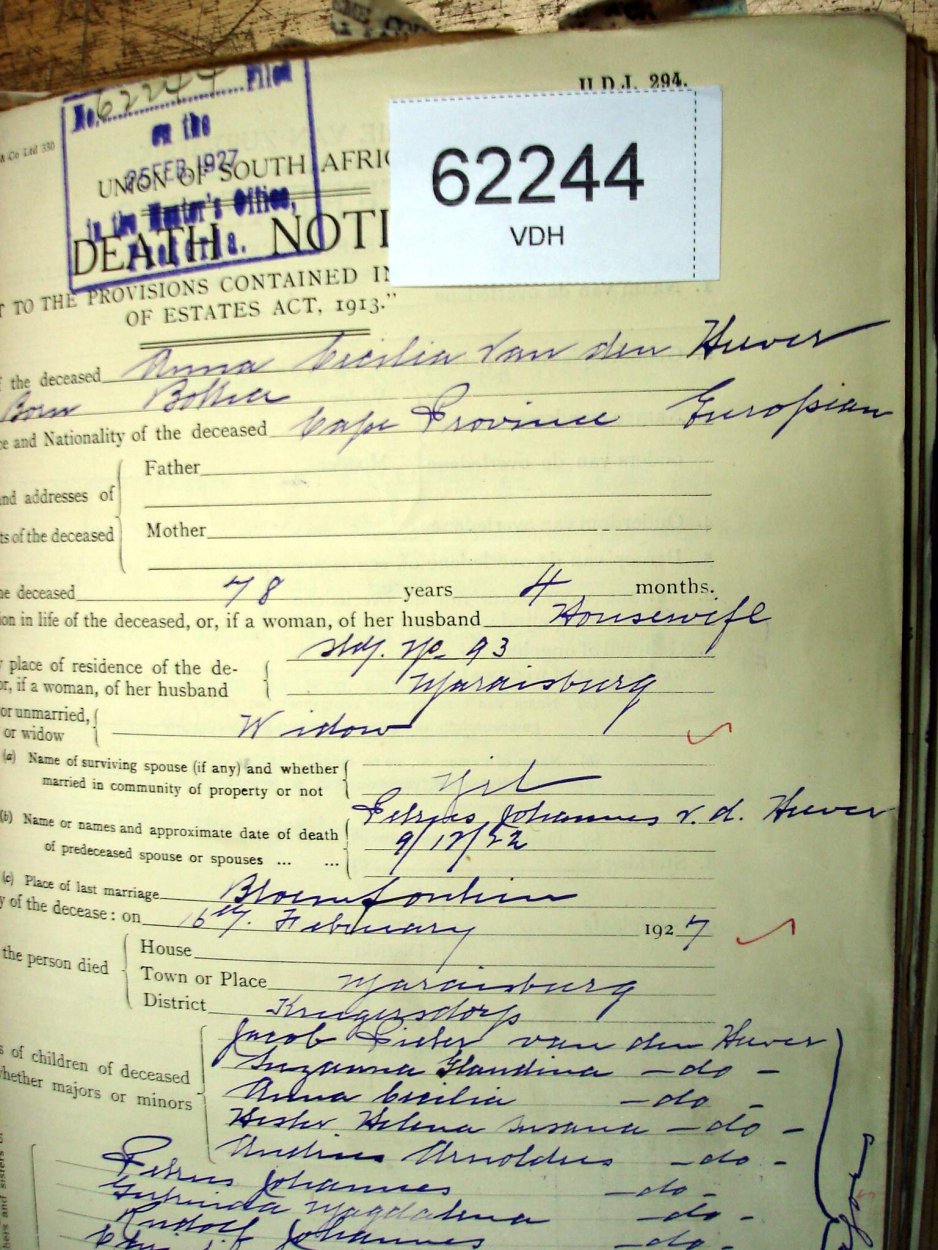 U.D.J. 294.
& Co Ltd 330
No. 62244 Filed
on the
25 FEB 1927
in the Master's Office,
Pretoria.
62244
VDH
UNION OF SOUTH AFRIC
DEATH NOTI
T TO THE PROVISIONS CONTAINED IN
OF ESTATES ACT, 1913."
f the deceased Anna Cecilia Van den Hever
Born Botha
ce and Nationality of the deceased Cape Province European
Father
nd addresses of
ts of the deceased
Mother
he deceased 78 years 4 months.
on in life of the deceased, or, if a woman, of her husband Housewife
y place of residence of the de- Std. No. 93
or, if a woman, of her husband Maraisburg
or unmarried,
or widow Widow
(a) Name of surviving spouse (if any) and whether
married in community of property or not Nil
(b) Name or names and approximate date of death Petrus Johannes v. d. Hever
of predeceased spouse or spouses ... ... 9/12/22
(c) Place of last marriage Bloemfontein
y of the decease: on 16th. February 1927
House
the person died Town or Place Maraisburg
District Krugersdorp
Jacob Pieter van den Hever
s of children of deceased Suzanna Glaudina - do -
whether majors or minors Anna Cecilia - do -
Hester Helena Susana - do -
Andries Arnoldus - do -
Petrus Johannes - do -
Magdalena - do -
Rudolf Johannes - do -